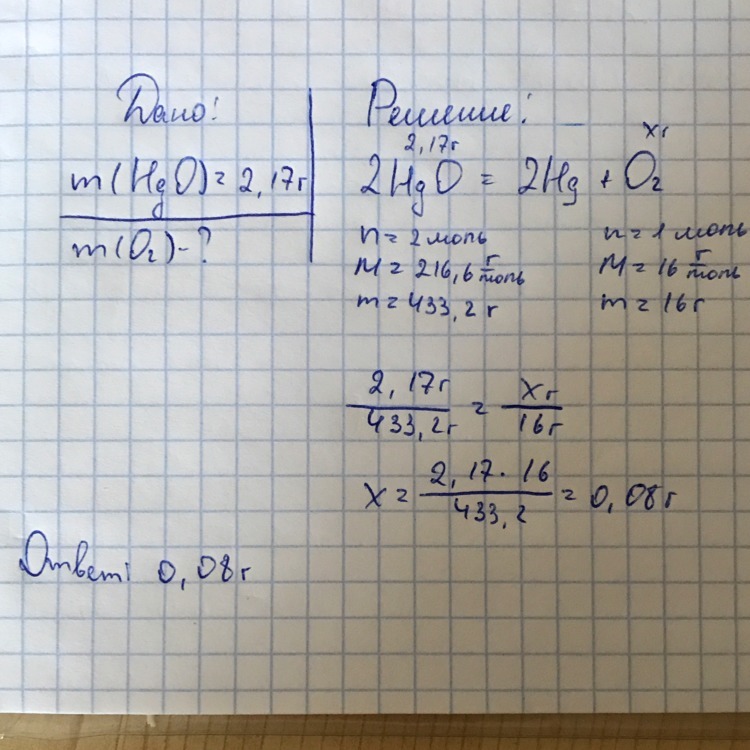 Дано:
m(HgO) = 2,17г
m(O₂) - ?
Решение:
2,17г xг
2HgO = 2Hg + O₂
n = 2 моль n = 1 моль
M = 216,6 г/моль M = 16 г/моль
m = 433,2 г m = 16г
2,17г / 433,2г = xг / 16г
x = 2,17 · 16 / 433,2 = 0,08г
Ответ: 0,08г